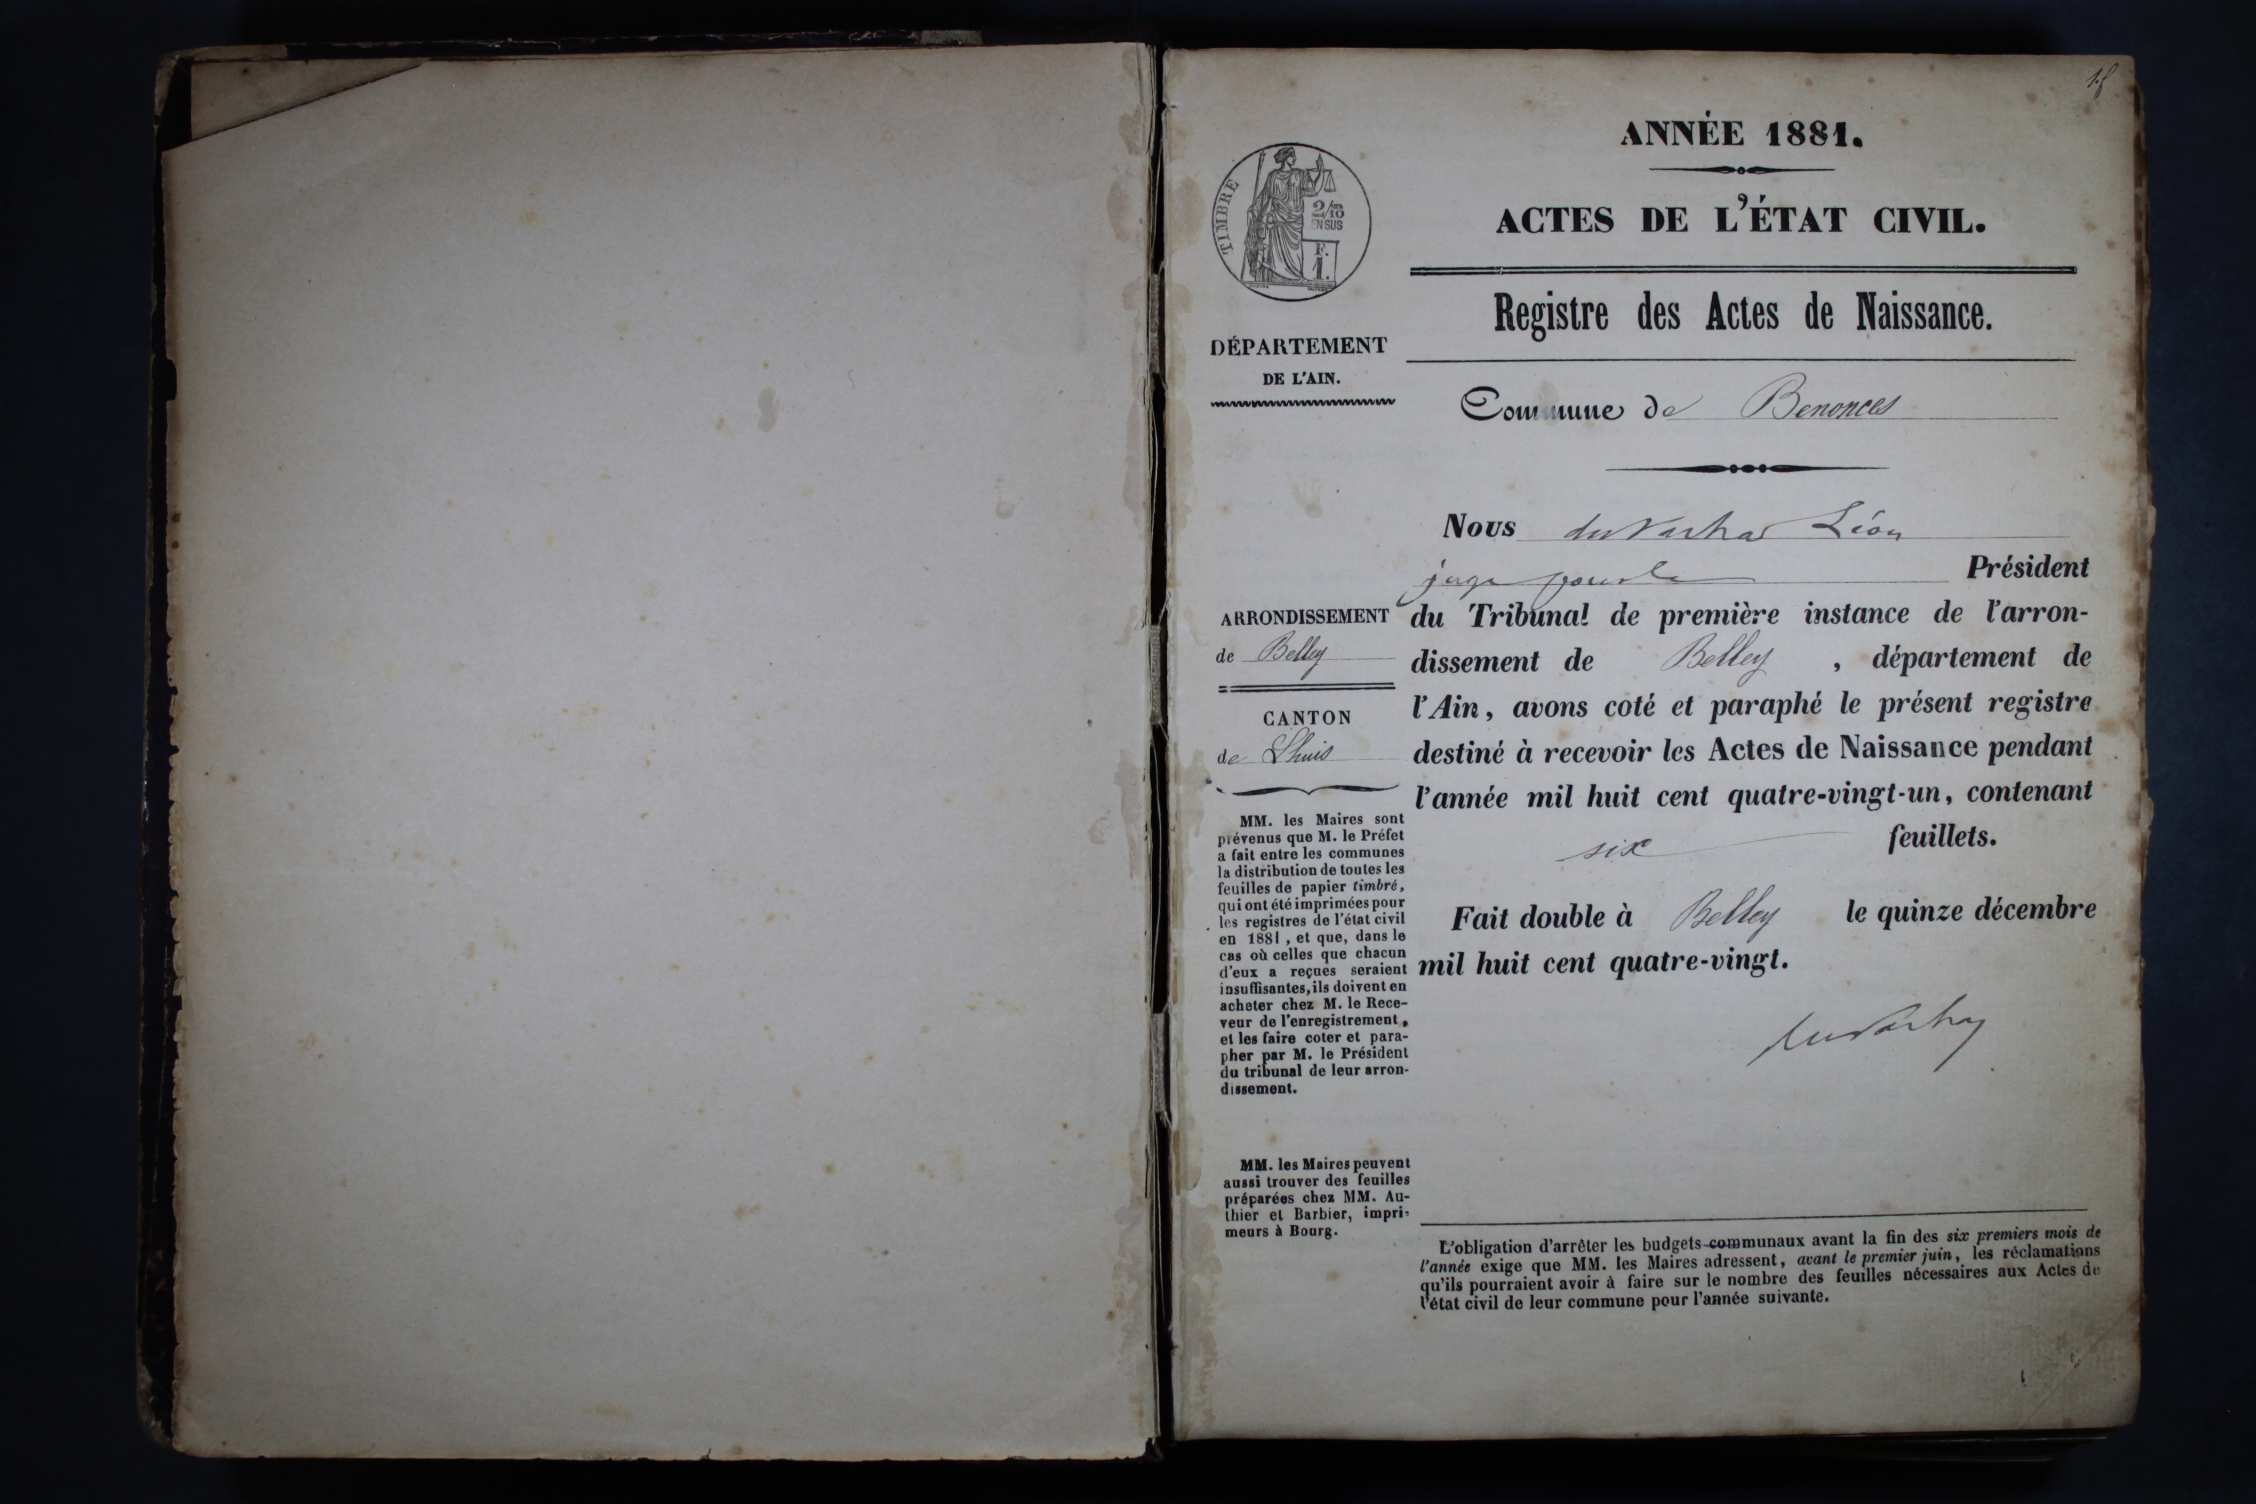 ANNÉE 1881.
ACTES DE L'ÉTAT CIVIL.
Registre des Actes de Naissance.
Commune de Benonces
TIMBRE
2/10
EN SUS
F.
1.
DÉPARTEMENT
DE L'AIN.
ARRONDISSEMENT
de Belley
CANTON
de Lhuis
MM. les Maires sont
prévenus que M. le Préfet
a fait entre les communes
la distribution de toutes les
feuilles de papier timbré,
qui ont été imprimées pour
les registres de l'état civil
en 1881, et que, dans le
cas où celles que chacun
d'eux a reçues seraient
insuffisantes, ils doivent en
acheter chez M. le Rece-
veur de l'enregistrement,
et les faire coter et para-
pher par M. le Président
du tribunal de leur arron-
dissement.
MM. les Maires peuvent
aussi trouver des feuilles
préparées chez MM. Au-
thier et Barbier, impri-
meurs à Bourg.
Nous Léon
juge pour le Président
du Tribunal de première instance de l'arron-
dissement de Belley, département de
l'Ain, avons coté et paraphé le présent registre
destiné à recevoir les Actes de Naissance pendant
l'année mil huit cent quatre-vingt-un, contenant
six feuillets.
Fait double à Belley le quinze décembre
mil huit cent quatre-vingt.
L'obligation d'arrêter les budgets communaux avant la fin des six premiers mois de
l'année exige que MM. les Maires adressent, avant le premier juin, les réclamations
qu'ils pourraient avoir à faire sur le nombre des feuilles nécessaires aux Actes de
l'état civil de leur commune pour l'année suivante.